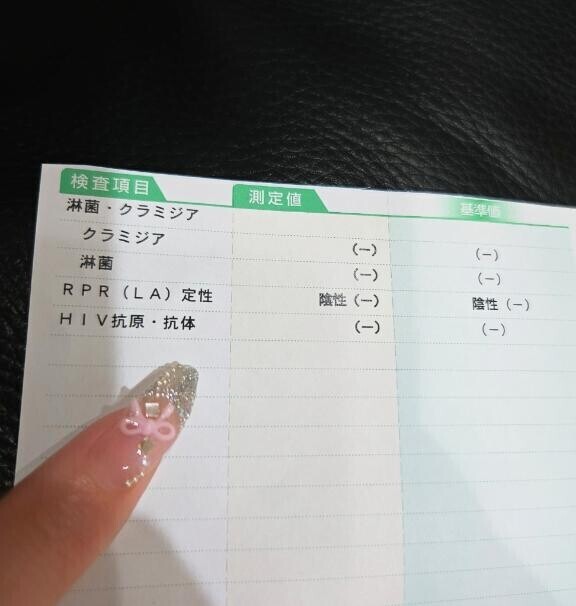 検査項目 測定値 基準値
淋菌・クラミジア
クラミジア (−) (−)
淋菌 (−) (−)
RPR(LA)定性 陰性(−) 陰性(−)
HIV抗原・抗体 (−) (−)